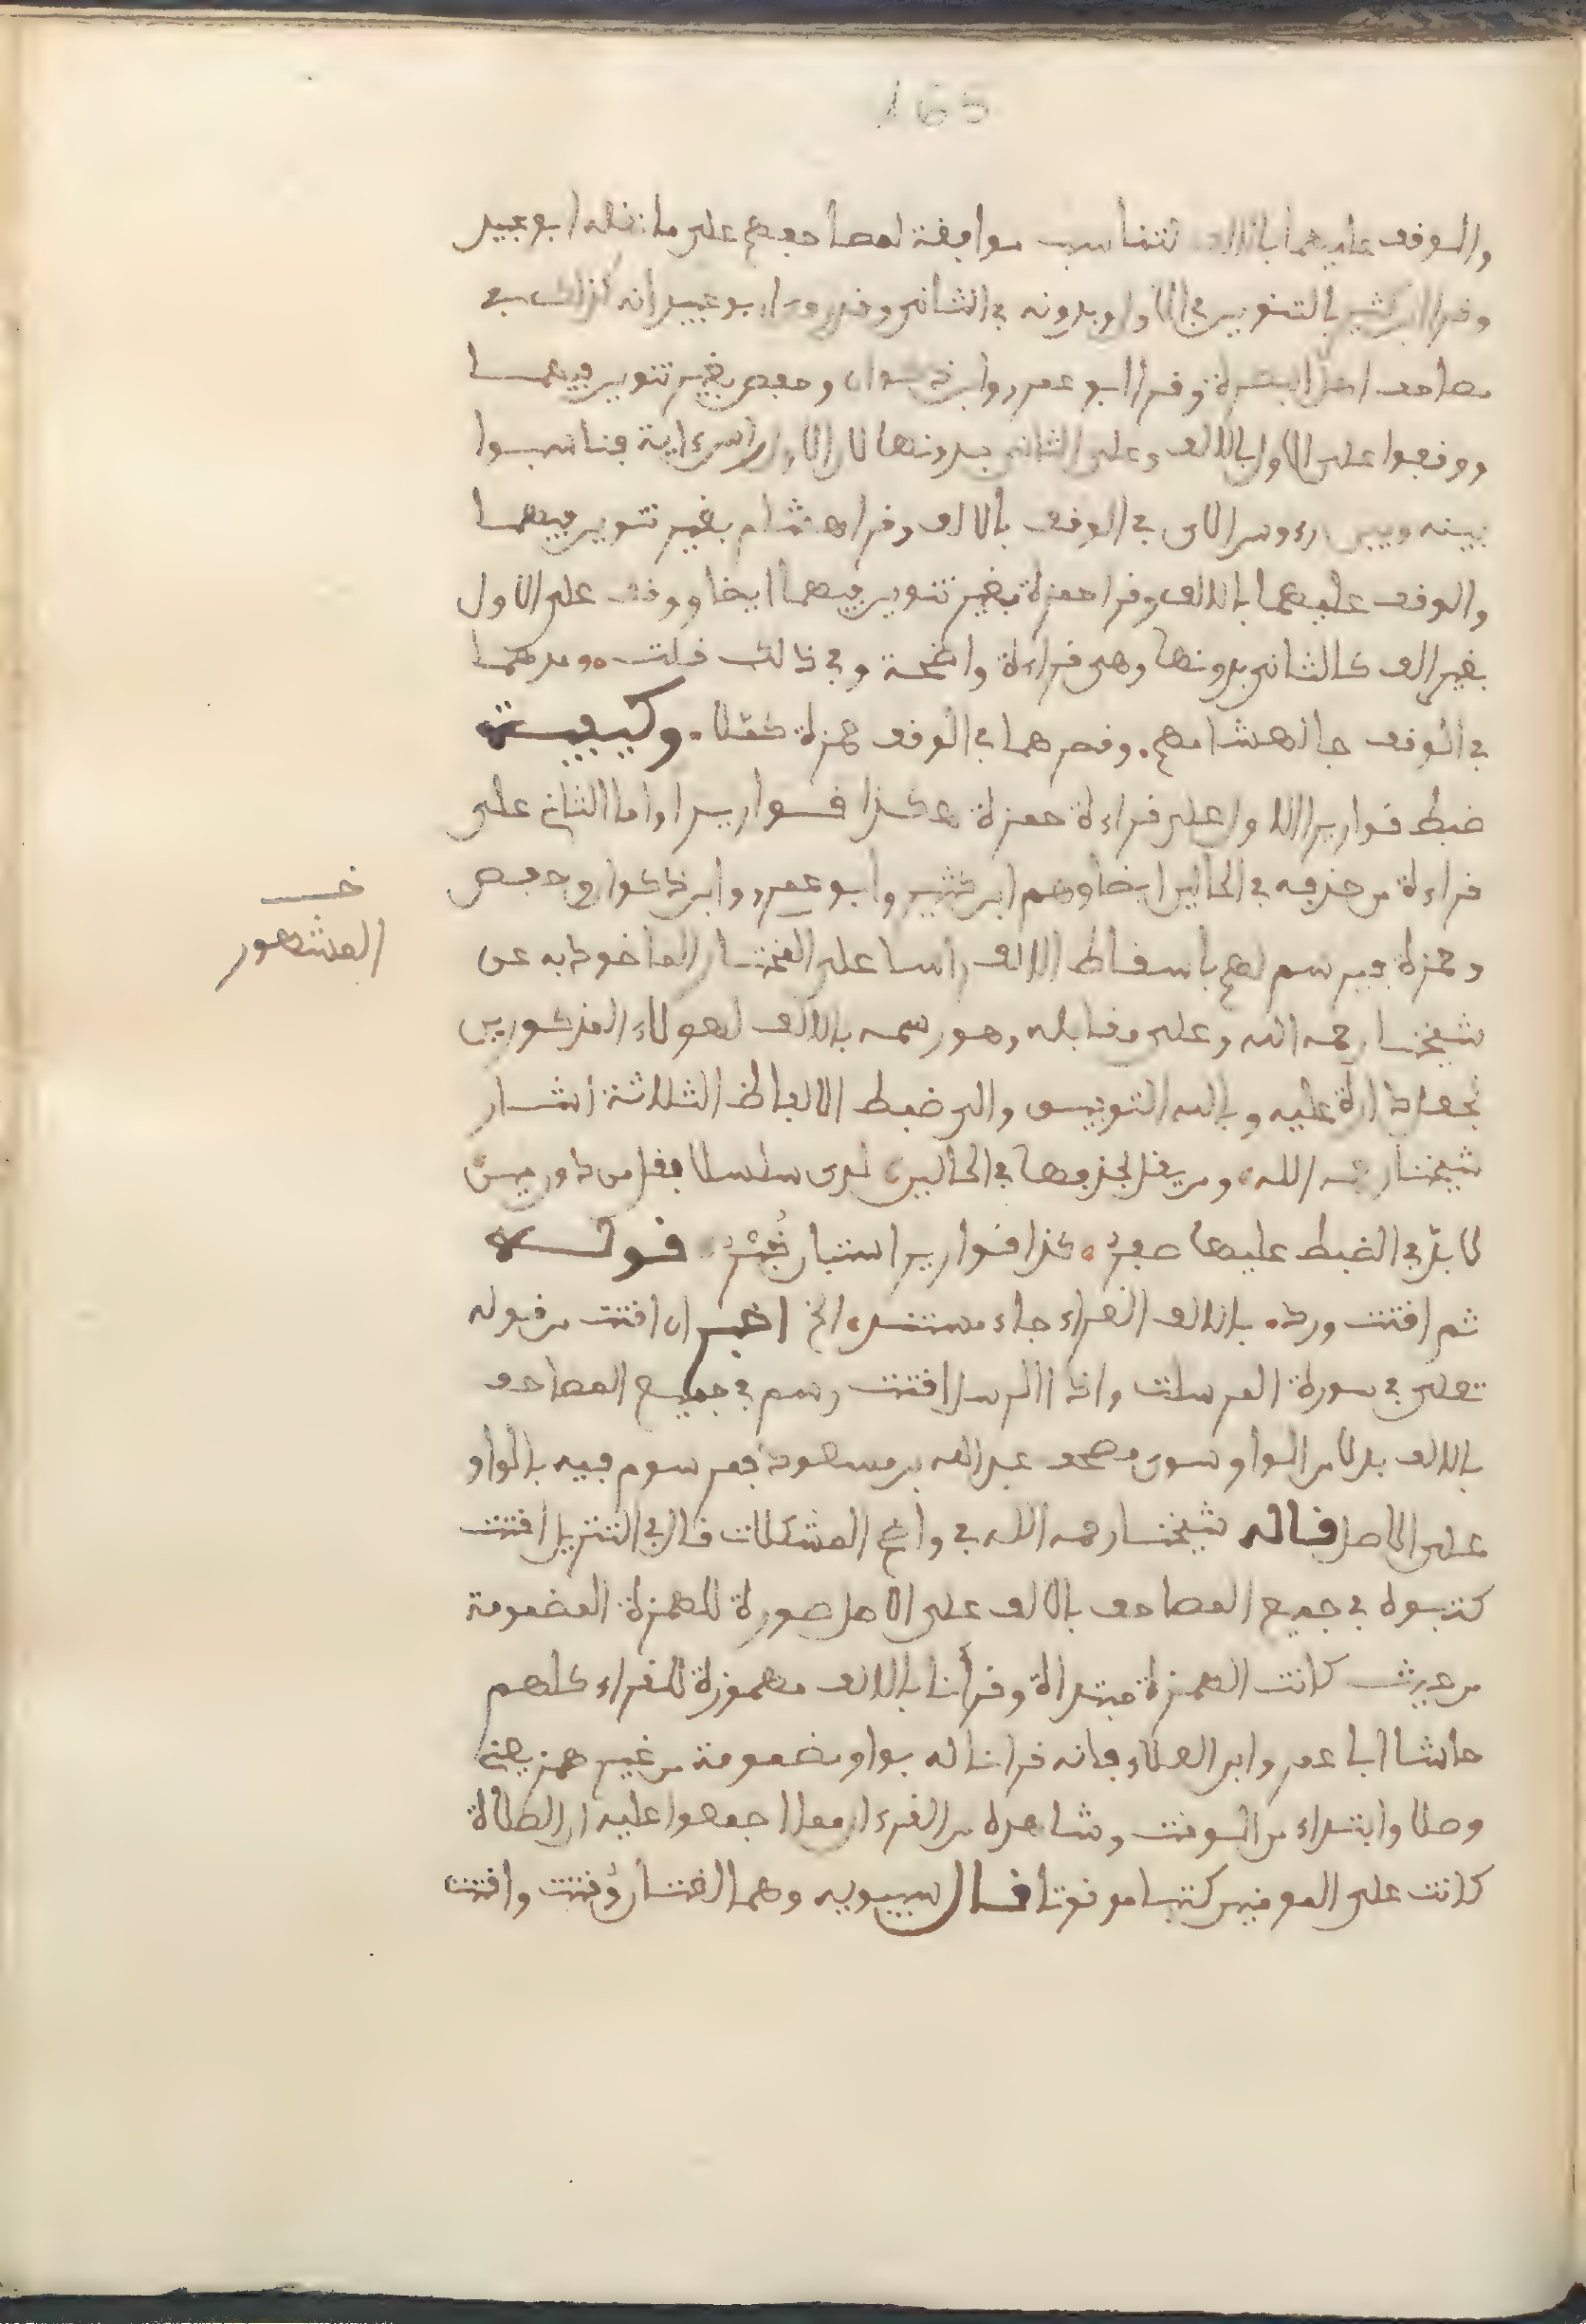 165
والوقف عليهما بالالف لتناسب موافقة لمصاحفهم على ما نقله ابو عبيد
وقرا ابن كثير بالتنوين في الاول وبدونه في الثاني وقد روى ابو عبيد انه كذلك في
مصاحف اهل البصرة وقرا ابو عمرو وابن ذكوان وحفص بغير تنوين فيهما
ووقفوا على الاول بالالف وعلى الثاني بدونها لان الاول راس ءاية فناسبوا
بينه وبين رءوس الاى في الوقف بالالف وقرا هشام بغير تنوين فيهما
والوقف عليهما بالالف وقرا حمزة بغير تنوين فيهما ايضا ووقف على الاول
بغير الف كالثاني بدونها وهى قراءة واضحة وفي ذالك قلت ومدهما
في الوقف جا لهشامهم وقصرهما في الوقف حمزة وكيفية
ضبط قواريرا الاول على قراءة حمزة هكذا قواريرا واما الثاني على
قراءة من حذفه في الحالين ايضا وهم ابن كثير وابو عمرو وابن ذكوان وحفص
وحمزة فيرسم لهم بأسقاط الالف راسا على المختار الماخوذ به عن
خـ
المشهور
شيخنا رحمه الله وعلى مقابله وهو رسمه بالالف لهولاء المذكورين
تجعل دارة عليه وبالله التوفيق والى ضبط الالفاظ الثلاثة اشار
شيخنا رحمه الله ومن يقل بحذفها في الحالين لدى سلاسلا فقل من دون مين
لا بد في الضبط عليها صفر كذا قواريرا قوله
ثم اقتت ورد بالالف القراء جاء مستند الخ اخبر ان اقتت من قوله
تعلى في سورة المرسلت واذا الرسل اقتت رسم في جميع المصاحف
بالالف بدلا من الواو سوى مصحف عبد الله بن مسعود فمرسوم فيه بالواو
على الاصل قاله شيخنا رحمه الله في واضح المشكلات قال في التنزيل اقتت
كتبوه في جميع المصاحف بالالف على الاصل صورة للهمزة المضمومة
من حيث كانت الهمزة مبتداة وقرأنا بالالف مهموزة للقراء كلهم
حاشا ابا عمرو ابن العلاء فانه قراناه له بواو مضمومة من غير همز يعنى
وصلا وابتداء من الوقت وشاهده من القرءان مما اجمعوا عليه ان الصلاة
كانت على المومنين كتبا موقوتا قال سيبويه وهما لغتان وُقتت واقتت